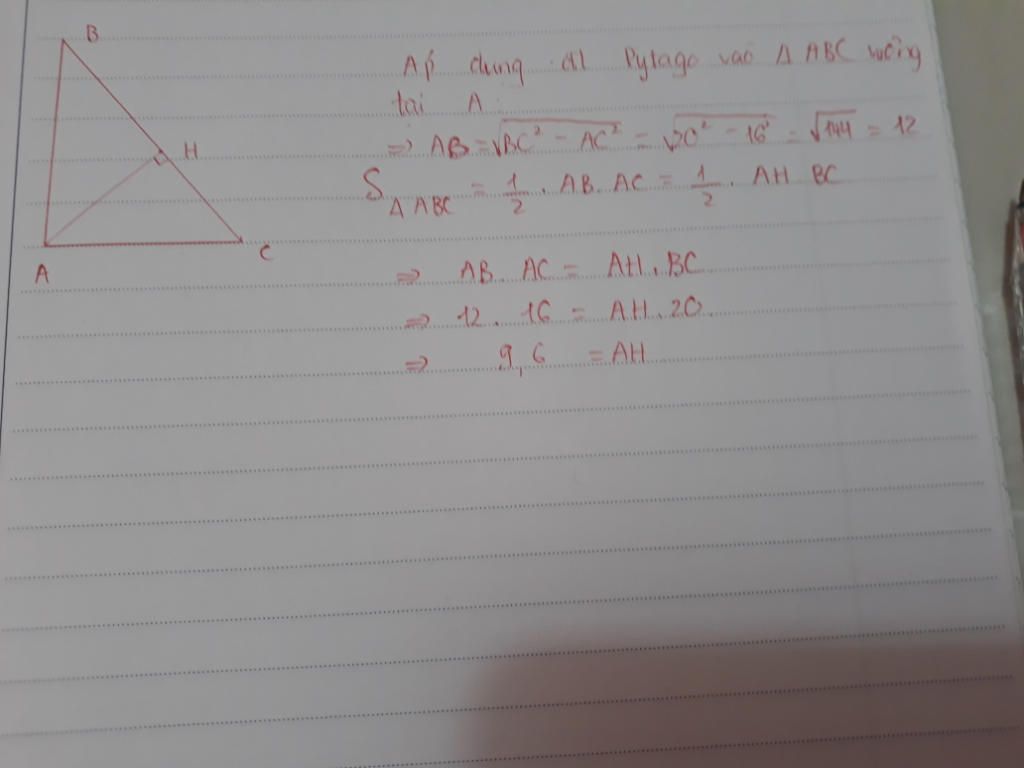 B
H
A
C
Áp dụng đl Pytago vào Δ ABC vuông
tại A
=> AB = √BC² - AC² = √20² - 16² = √144 = 12
S Δ ABC = 1/2 . AB. AC = 1/2 . AH BC
=> AB. AC = AH. BC
=> 12. 16 = AH. 20.
=> 9,6 = AH